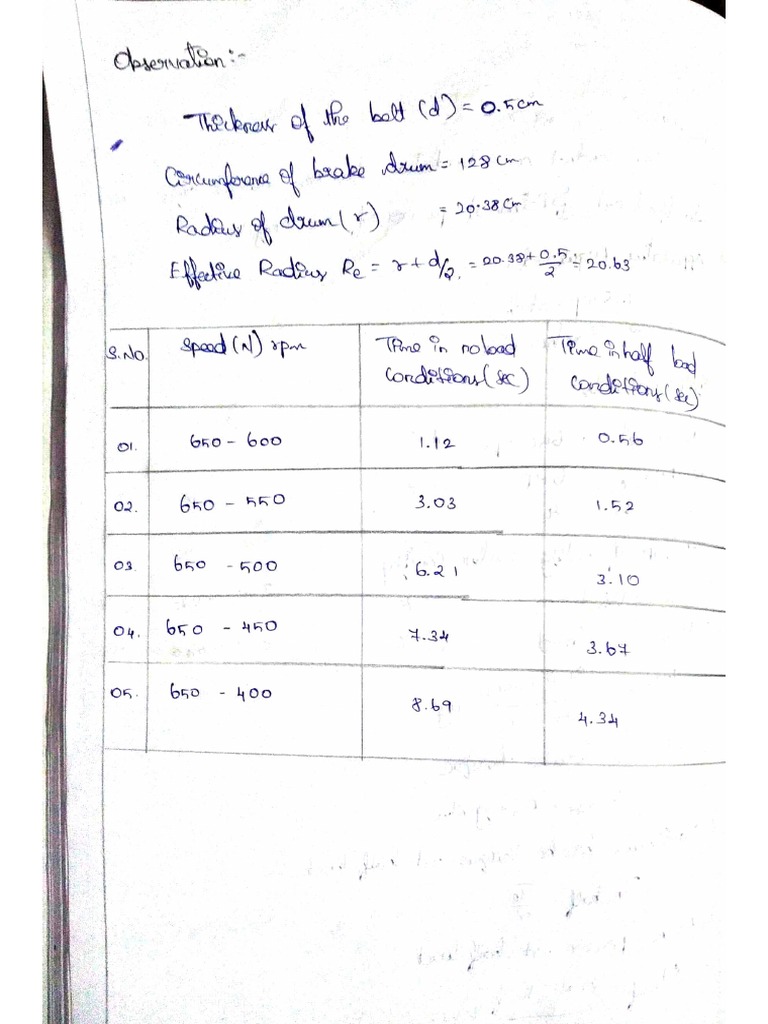 Observation:-
Thickness of the belt (d) = 0.5cm
Circumference of brake drum = 128 cm
Radius of drum (r) = 20.38 cm
Effective Radius Re = r + d/2. = 20.38 + 0.5/2 = 20.63
S.No. Speed (N) rpm Time in no load conditions (sec) Time in half load conditions (sec)
01. 650 - 600 1.12 0.56
02. 650 - 550 3.03 1.52
03. 650 - 500 6.21 3.10
04. 650 - 450 7.34 3.67
05. 650 - 400 8.69 4.34